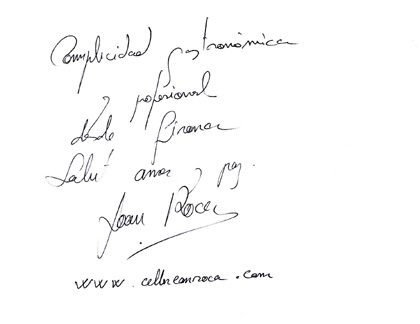 Complicidad gastronómica
y profesional
desde Girona
Salut amor y paz.
Joan Roca
www.cellercanroca.com